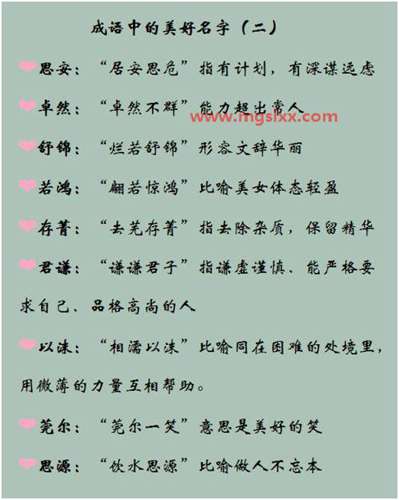 成语中的美好名字（二）
思安：“居安思危”指有计划，有深谋远虑
卓然：“卓然不群”能力超出常人
www.mgsixx.com
舒锦：“烂若舒锦”形容文辞华丽
若鸿：“翩若惊鸿”比喻美女体态轻盈
存菁：“去芜存菁”指去除杂质，保留精华
君谦：“谦谦君子”指谦虚谨慎、能严格要
求自己、品格高尚的人
以沫：“相濡以沫”比喻同在困难的处境里，
用微薄的力量互相帮助。
莞尔：“莞尔一笑”意思是美好的笑
思源：“饮水思源”比喻做人不忘本